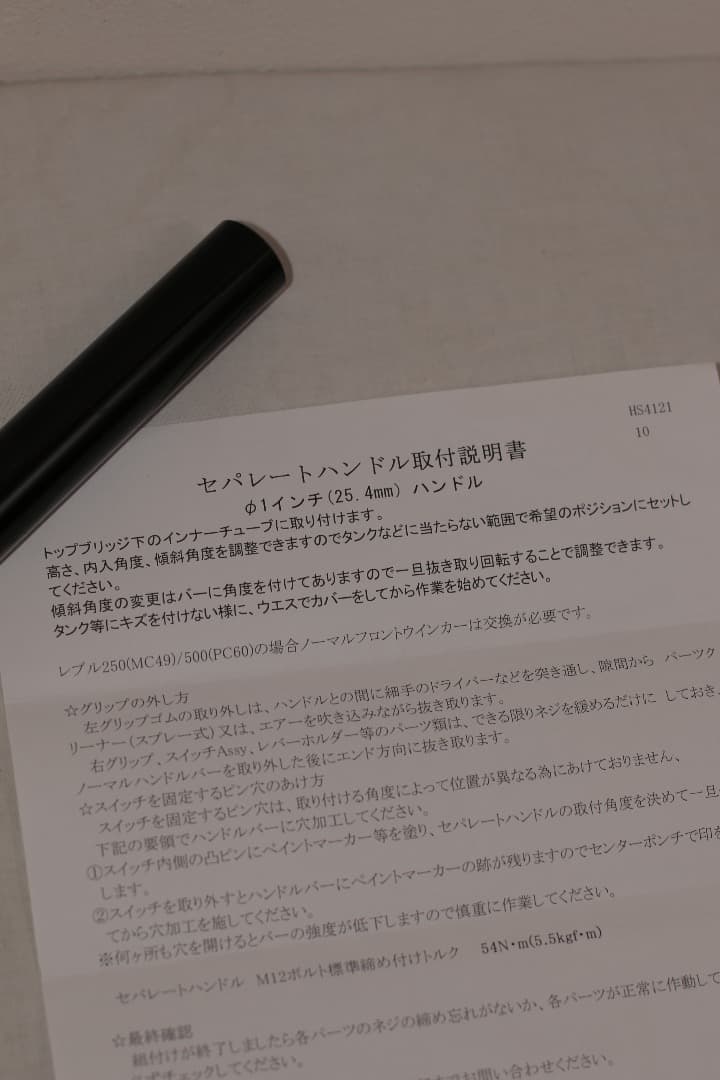 HS4121
10
セパレートハンドル取付説明書
φ1インチ(25.4mm) ハンドル
トップブリッジ下のインナーチューブに取り付けます。
高さ、内入角度、傾斜角度を調整できますのでタンクなどに当たらない範囲で希望のポジションにセットし
てください。
傾斜角度の変更はバーに角度を付けてありますので一旦抜き取り回転することで調整できます。
タンク等にキズを付けない様に、ウエスでカバーをしてから作業を始めてください。
レブル250(MC49)/500(PC60)の場合ノーマルフロントウインカーは交換が必要です。
☆グリップの外し方
左グリップゴムの取り外しは、ハンドルとの間に細手のドライバーなどを突き通し、隙間から パーツク
リーナー(スプレー式)又は、エアーを吹き込みながら抜き取ります。
右グリップ、スイッチAssy、レバーホルダー等のパーツ類は、できる限りネジを緩めるだけに しておき、
ノーマルハンドルバーを取り外した後にエンド方向に抜き取ります。
☆スイッチを固定するピン穴のあけ方
スイッチを固定するピン穴は、取り付ける角度によって位置が異なる為にあけておりません、
下記の要領でハンドルバーに穴加工してください。
①スイッチ内側の凸ピンにペイントマーカー等を塗り、セパレートハンドルの取付角度を決めて一旦
します。
②スイッチを取り外すとハンドルバーにペイントマーカーの跡が残りますのでセンターポンチで印を
てから穴加工を施してください。
※何ヶ所も穴を開けるとバーの強度が低下しますので慎重に作業してください。
セパレートハンドル M12ボルト標準締め付けトルク 54N・m(5.5kgf・m)
☆最終確認
組付けが終了しましたら各パーツのネジの締め忘れがないか、各パーツが正常に作動して
ずチェックしてください。
までお問い合わせください。